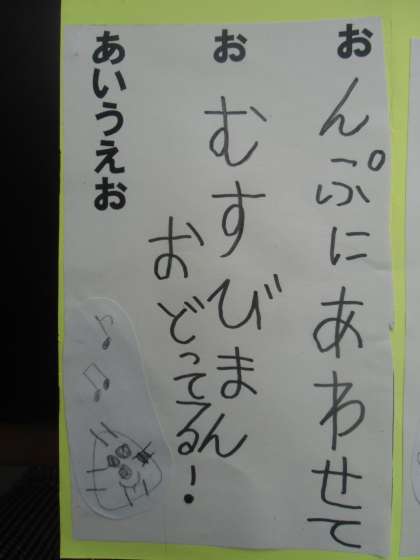 おんぷにあわせて
おむすびまん
おどってる!
あいうえお